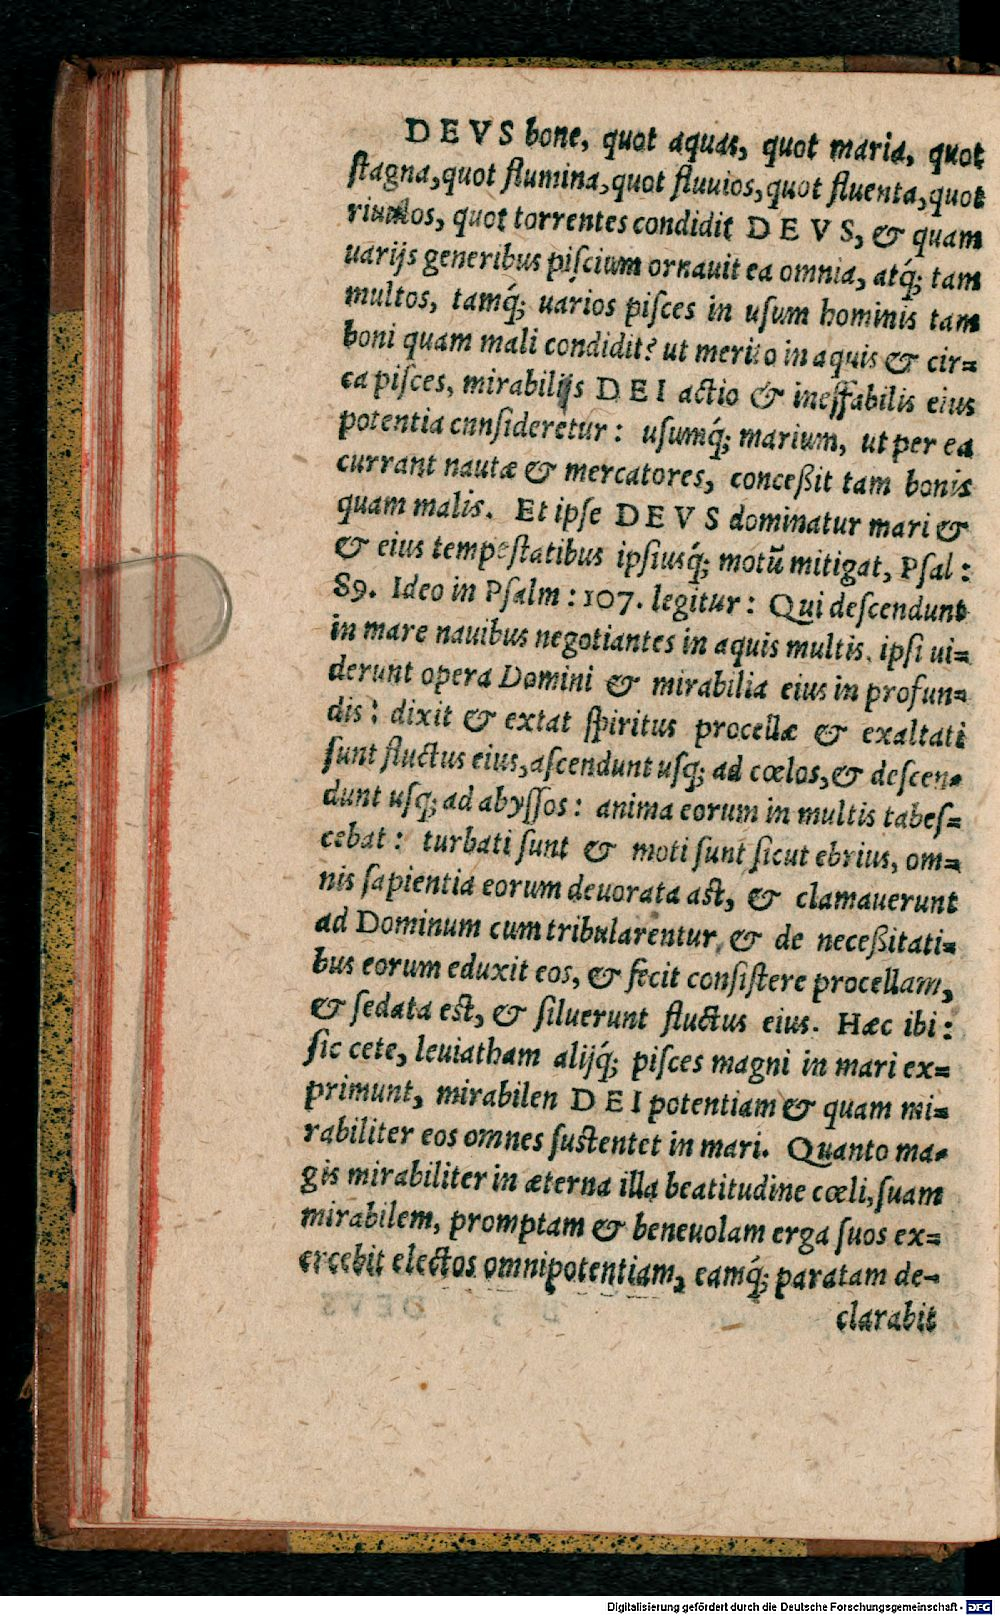 DEVS bone, quot aquas, quot maria, quot
ſtagna, quot flumina, quot fluuios, quot fluenta, quot
riuulos, quot torrentes condidit DEVS, & quam
uarijs generibus piſcium ornauit ea omnia, atq́; tam
multos, tamq́; uarios piſces in uſum hominis tam
boni quam mali condidit? ut merito in aquis & cir=
ca piſces, mirabilijs DEI actio & ineffabilis eius
potentia cnnſideretur: uſumq́; marium, ut per ea
currant nautæ & mercatores, conceßit tam bonis
quam malis. Et ipſe DEVS dominatur mari &
& eius tempeſtatibus ipſiusq́; motũ mitigat, Pſal:
89. Ideo in Pſalm: 107. legitur: Qui deſcendunt
in mare nauibus negotiantes in aquis multis, ipſi ui=
derunt opera Domini & mirabilia eius in profun=
dis: dixit & extat ſpiritus procellæ & exaltati
ſunt fluctus eius, aſcendunt uſq; ad cœlos, & deſcen=
dunt uſq; ad abyſſos: anima eorum in multis tabeſ=
cebat: turbati ſunt & moti ſunt ſicut ebrius, om=
nis ſapientia eorum deuorata aſt, & clamauerunt
ad Dominum cum tribularentur, & de neceßitati=
bus eorum eduxit eos, & fecit conſiſtere procellam,
& ſedata eſt, & ſiluerunt fluctus eius. Hæc ibi:
ſic cete, leuiatham alijq́; piſces magni in mari ex=
primunt, mirabilen DEI potentiam & quam mi=
rabiliter eos omnes ſuſtentet in mari. Quanto ma=
gis mirabiliter in æterna illa beatitudine cœli, ſuam
mirabilem, promptam & beneuolam erga ſuos ex=
ercebit electos omnipotentiam, eamq́; paratam de=
clarabit
Digitalisierung gefördert durch die Deutsche Forschungsgemeinschaft - DFG